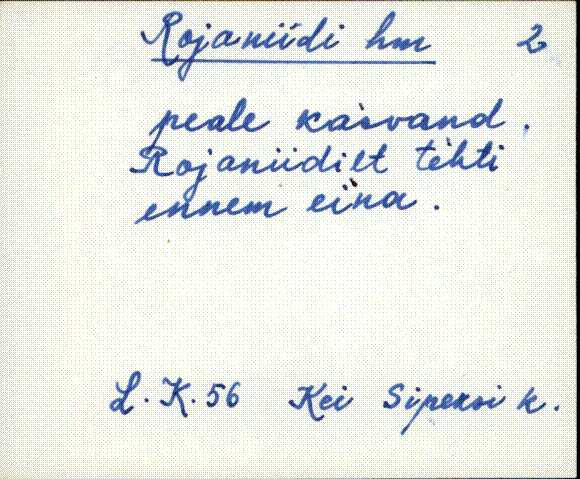 Rojaniidi hm 2
peale kasvand.
Rojaniidilt tehti
ennem eina.
L.K.56 Kei Sipersi k.